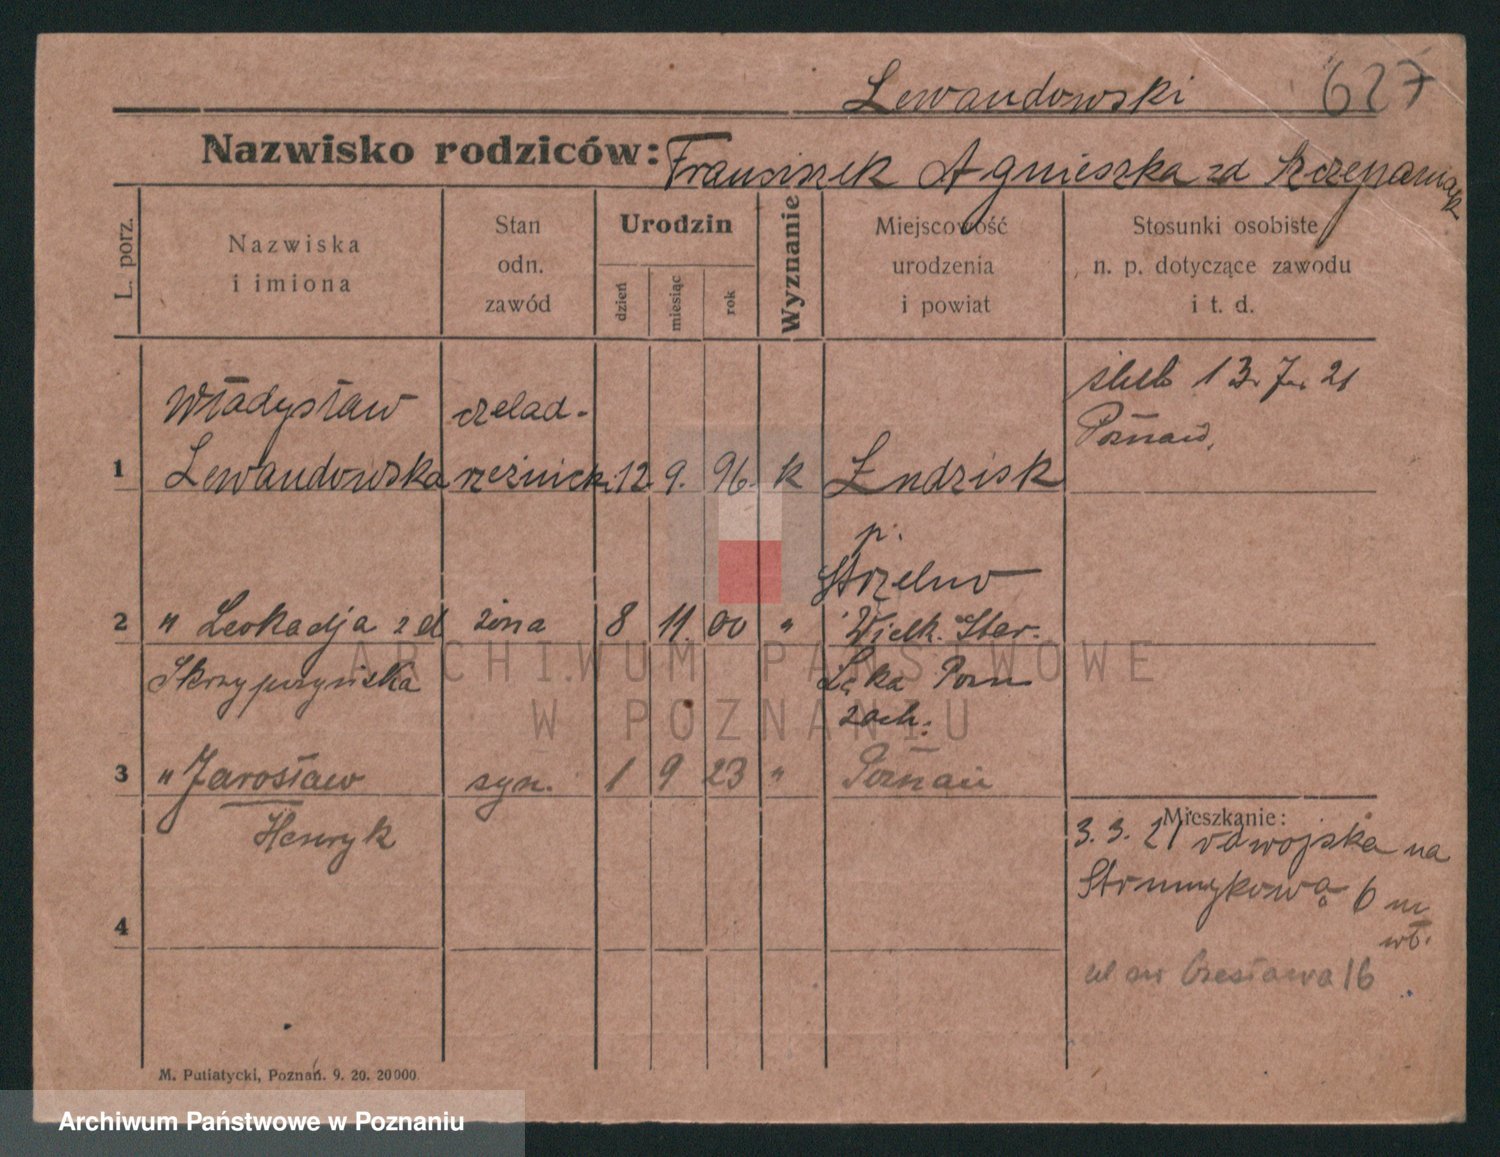 Lewandowski 627
Nazwisko rodziców: Franciszek Agnieszka zd Szczepaniak
L. porz.
Nazwiska
i imiona
Stan
odn.
zawód
Urodzin
dzień
miesiąc
rok
Wyznanie
Miejscowość
urodzenia
i powiat
Stosunki osobiste
n. p. dotyczące zawodu
i t. d.
ślub 13. 7. 21
Poznań.
Władysław czelad-
1 Lewandowska rzeźnick. 12. 9. 96. k
p.
Strzelno
2 " Leokadja zd żona 8 11. 00 " Wielk.
Skrzypczyńska Łąka Pozn
zach.
3 " Jarosław syn. 1 9 23 " Poznań
Henryk
4
Mieszkanie:
3. 3. 21 od wojska na
Strumykową 6 m
wł.
Czesława 16
M. Putiatycki, Poznań. 9. 20. 20000.
ARCHIWUM PAŃSTWOWE
W POZNANIU
Archiwum Państwowe w Poznaniu